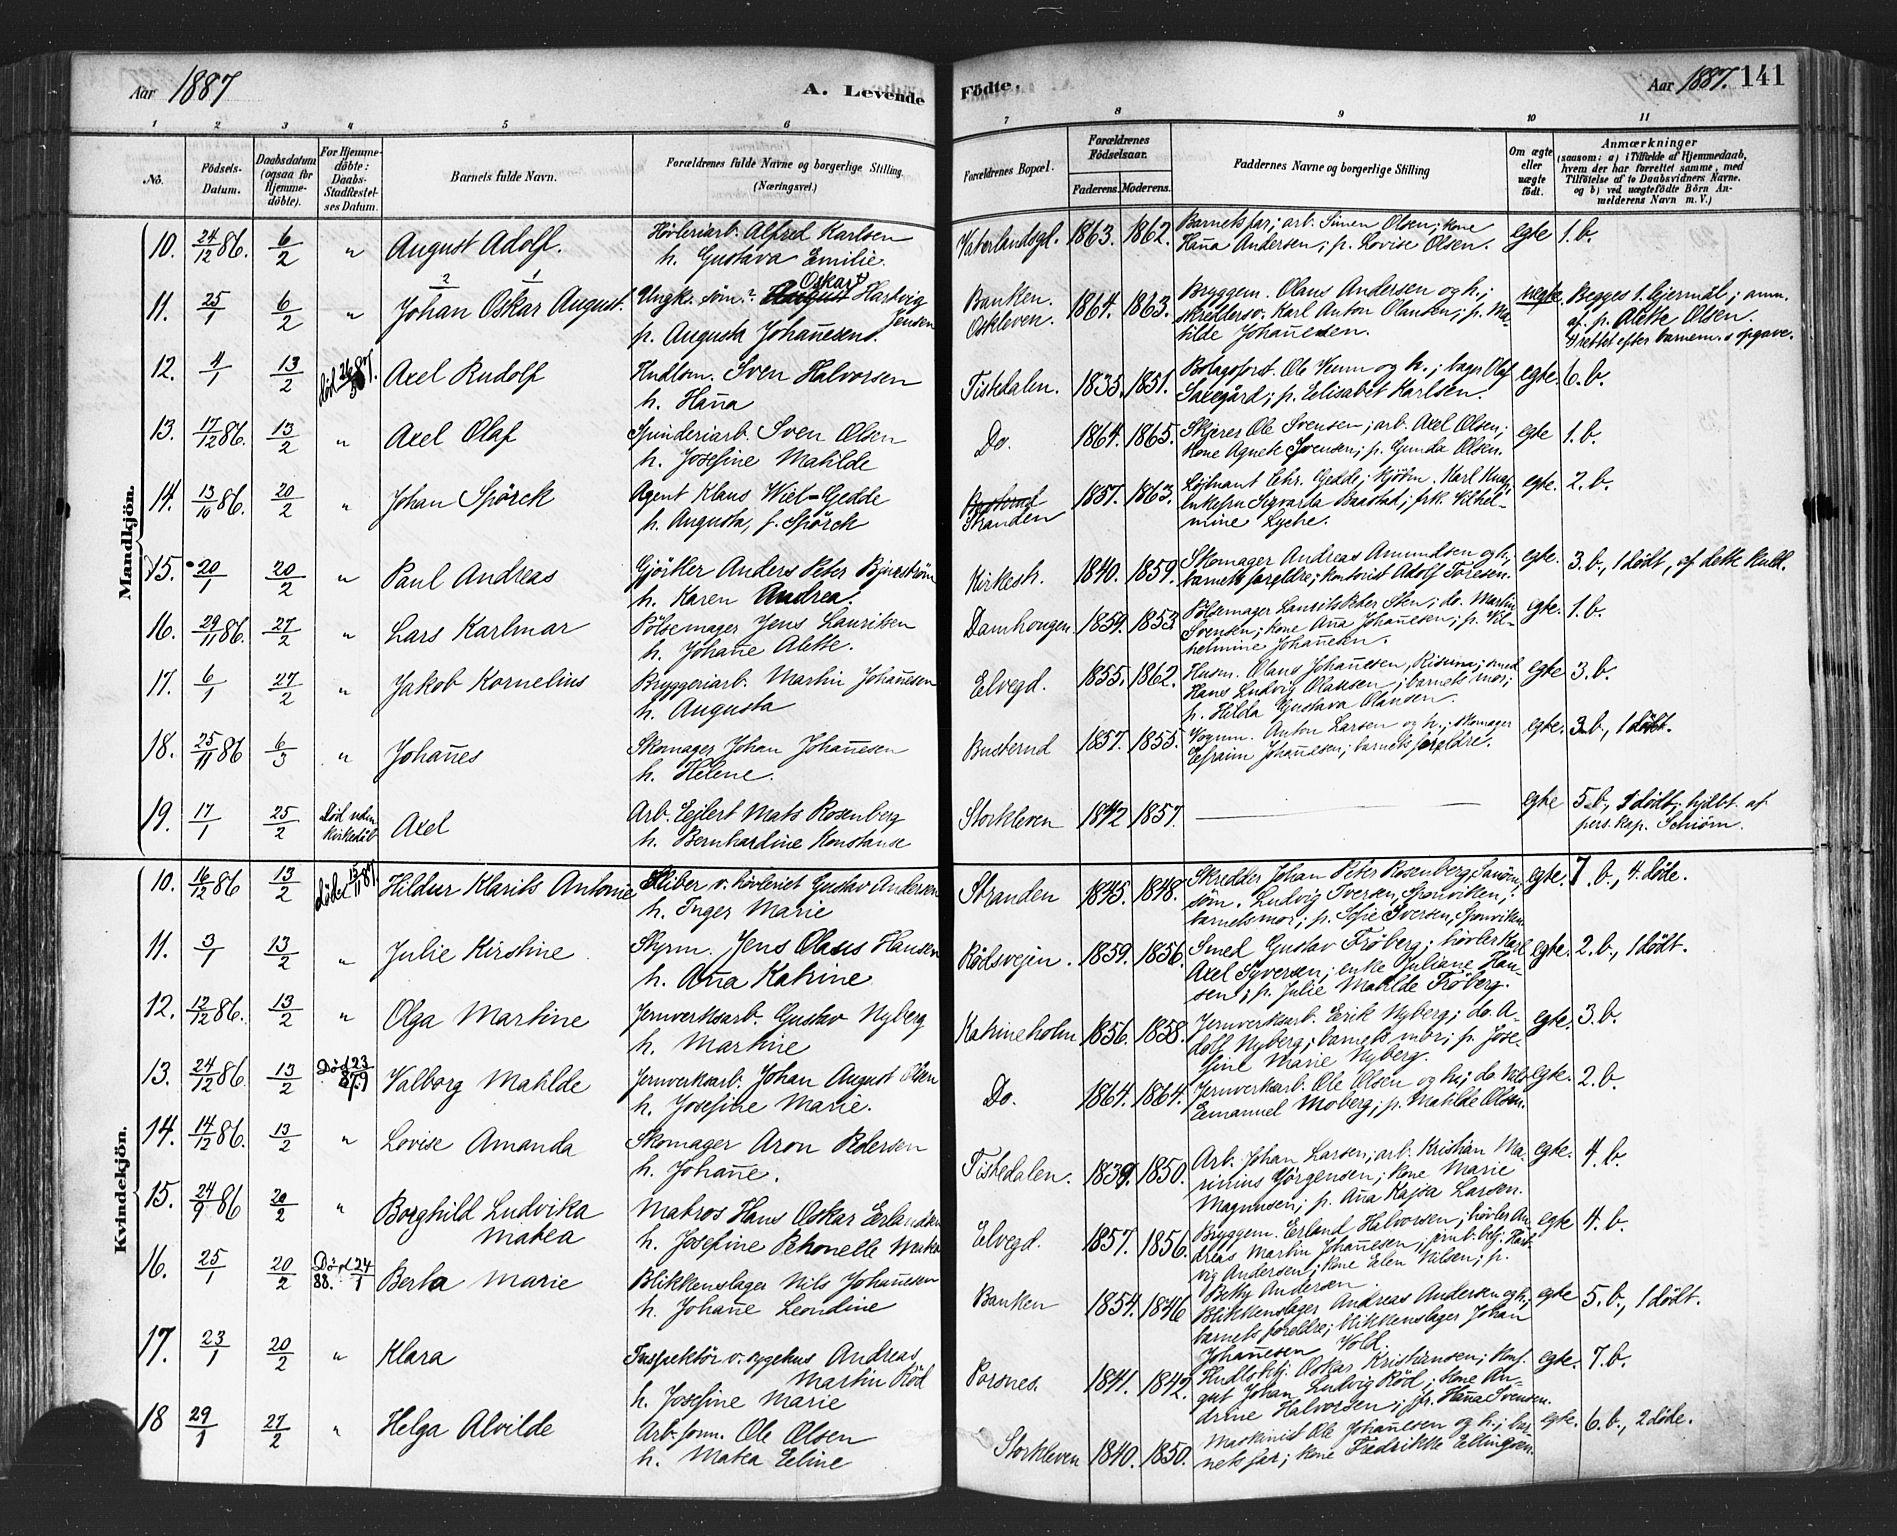 Aar 1887
A. Levende
Födte.
Aar 1887. 141
1 2 3 4 5 6 7 8 9 10 11
No.
Födsels-Datum.
Daabsdatum (ogsaa for Hjemme-döbte).
For Hjemme-döbte: Daabs-Stadfæstel-ses Datum.
Barnets fulde Navn.
Forældrenes fulde Navne og borgerlige Stilling. (Næringsvei.)
Forældrenes Bopæl.
Forældrenes Födselsaar.
Faderens. Moderens.
Faddernes Navne og borgerlige Stilling
Om ægte eller uægte født.
Anmærkninger
(saasom: a) i Tilfælde af Hjemmedaab,
hvem der har forrettet samme, med
Tilföielse af to Daabsvidners Navne.
og b) ved uægtefödte Börn An-
melderens Navn m. V.)
Mandkjön.
10. 24/12 86. 6/2 " August Adolf. Hövleriarb. Alfred Karlsen
h. Gustava Emilie.
1863. 1862. Barnets far; arb. Simen Olsen; kone
Hanna Andersen; p. Lovise Olsen. egte 1. b.
11. 25/1 6/2 " Johan Oskar August. Ungk. söm. Oskar Hartvig Jensen
p. Augusta Johannesen.
Banken. Oskleven. 1864. 1863. Bryggem. Olaus Andersen og h.;
skreddersv. Karl Anton Olausen; p. Ma-
tilde Johannesen. uegte. Begges 1. leiermål; anm.
af p. Alette Olsen.
Rettet efter barnem.s opgave.
12. 4/1 13/2 Axel Rudolf Hndlsm. Sven Halvorsen
h. Hanna
Tistedalen. 1835. 1851. egte. 6. b.
p. Elisabet Karlsen.
13. 17/12 86. 13/2 " Axel Olaf Spinderiarb. Sven Olsen
h. Josefine Matilde
Do. 1864. 1865. Skjerer Ole Svensen; arb. Axel Olsen;
kone Agnete Svensen; p. Gunda Olsen. egte 1. b.
14. 13/10 86. 20/2 " Johan Spörck Agent Klaus Wiel-Gedde
h. Augusta, f. Spörck
Stranden 1857. 1863. Löjtnant Chr. Gedde; kjöbm. Karl
enkefru Sigvarda Baastad; frk. Vilhel-
mine Lyche. egte. 2. b.
15. 20/1 20/2 " Paul Andreas Gjörtler Anders Peter Bjurström
h. Karen Andrea.
Kirkesh. 1840. 1859. Skomager Andreas Amundsen og h.;
barnets foreldre; kontorist Adolf Toresen. egte. 3. b., 1 dödt, af dette kuld.
16. 29/11 86. 27/2 " Lars Karlmar Pölsemager Jens Lauritsen
h. Johanne Alette.
Damhougen. 1859. 1853 Pölsemager Laurits Peder Sten; do. Martin
Svensen; kone Anna Johannesen; p. Vil-
helmine Johannesen. egte. 1. b.
17. 6/1 27/2 " Jakob Kornelius Bryggeriarb. Martin Johannesen
h. Augusta
Elvegd. 1855. 1862. Husm. Olaus Johannesen, smed
Hans Ludvig Olausen; barnets mor;
p. Hilda Gustava Olausen. egte 3. b.
18. 25/11 86 6/3 " Johannes Skomager Johan Johannesen
h. Helene.
Busterud 1857. 1855. Vognm. Anton Larsen og h.; skomager
Efraim Johannesen; barnets foreldre. egte. 3. b., 1 dödt.
19. 17/1 25/2 Död uden kirkedåb Axel Arb. Ejlert Mats Rosenberg
h. Bernhardine Konstanse
Storkleven 1842 1857. egte 5. b., 1 dödt; hjdbt. af
pers. kap. Schiörn.
Kvindekjön.
10. 16/12 86 13/2 Hildur Klarits Antonie Sliber v. hövleriet Gustav Andersen
h. Inger Marie
Stranden 1845. 1848. Skredder Johan Peter Rosenberg,
söm. Ludvig Iversen, Sponviken;
barnets mor; p. Sofie Iversen, Sponviken egte. 7. b., 4. döde.
11. 3/1 13/2 " Julie Kirstine Styrm. Jens Olaus Hansen
h. Anna Katrine
Rödsvejen. 1859. 1856. Smed Gustav Fröberg; hövler Karl
Axel Syversen; enke Juliane Han-
sen; p. Julie Matilde Fröberg. egte. 2. b., 1 dödt.
12. 12/12 86. 13/2 " Olga Martine Jernverksarb. Gustav Nyberg
h. Martine
Katrineholm 1856. 1858. Jernverksarb. Erik Nyberg; do. A-
dolf Nyberg; barnets mor; p. Jose-
fine Marie Nyberg. egte. 3. b.
13. 24/12 86. 13/2 Valborg Matilde Jernverksarb. Johan August Olsen
h. Josefine Marie.
Do. 1864. 1864. Jernverksarb. Ole Olsen og h.; do. Nils
Emanuel Moberg; p. Matilde Olsen. egte. 2. b.
14. 14/12 86. 13/2 " Lovise Amanda Skomager Aron Pedersen
h. Johanne.
Tistedalen. 1839. 1850. Arb. Johan Larsen; arb. Kristian Ma-
rinius Jörgensen; kone Marie
Magnusen; p. Anna Kajsa Larsen. egte. 4. b.
15. 24/9 86 20/2 " Borghild Ludvika Matea Matros Hans Oskar Erlandsen
h. Josefine Petronelle
Elvegd. 1857. 1856. Bryggem. Erland Halvorsen; hövler An-
dreas Martin Johannesen; Hart-
vig Andersen; kone Elen Nilsen; p.
Betsy Andersen. egte 4. b.
16. 25/1 20/2 Död 24/1 88. Berta Marie Blikkenslager Nils Johannesen
h. Johanne Leondine
Banken 1854. 1846 Blikkenslager Andreas Andersen og h.;
barnets foreldre; blikkenslager Johan
Johannesen Vold. egte 5. b., 1 dödt.
17. 23/1 20/2 " Klara Inspektör v. sygehus Andreas
Martin Röd
h. Josefine Marie
Porsnes. 1841. 1842. Hndlsbtj. Oskar Kristiansen;
gut Johan Ludvig Röd; kone An-
drine Halvorsen; p. Hanna Svensen. egte. 7. b.
18 29/1 27/2 " Helga Alvilde Arb.form. Ole Olsen
h. Matea Eline
Storkleven 1840. 1850. Maskinist Ole Johannesen og h.; bar-
nets far; kone Fredrikke Ellingsen. egte. 6. b., 2 döde.